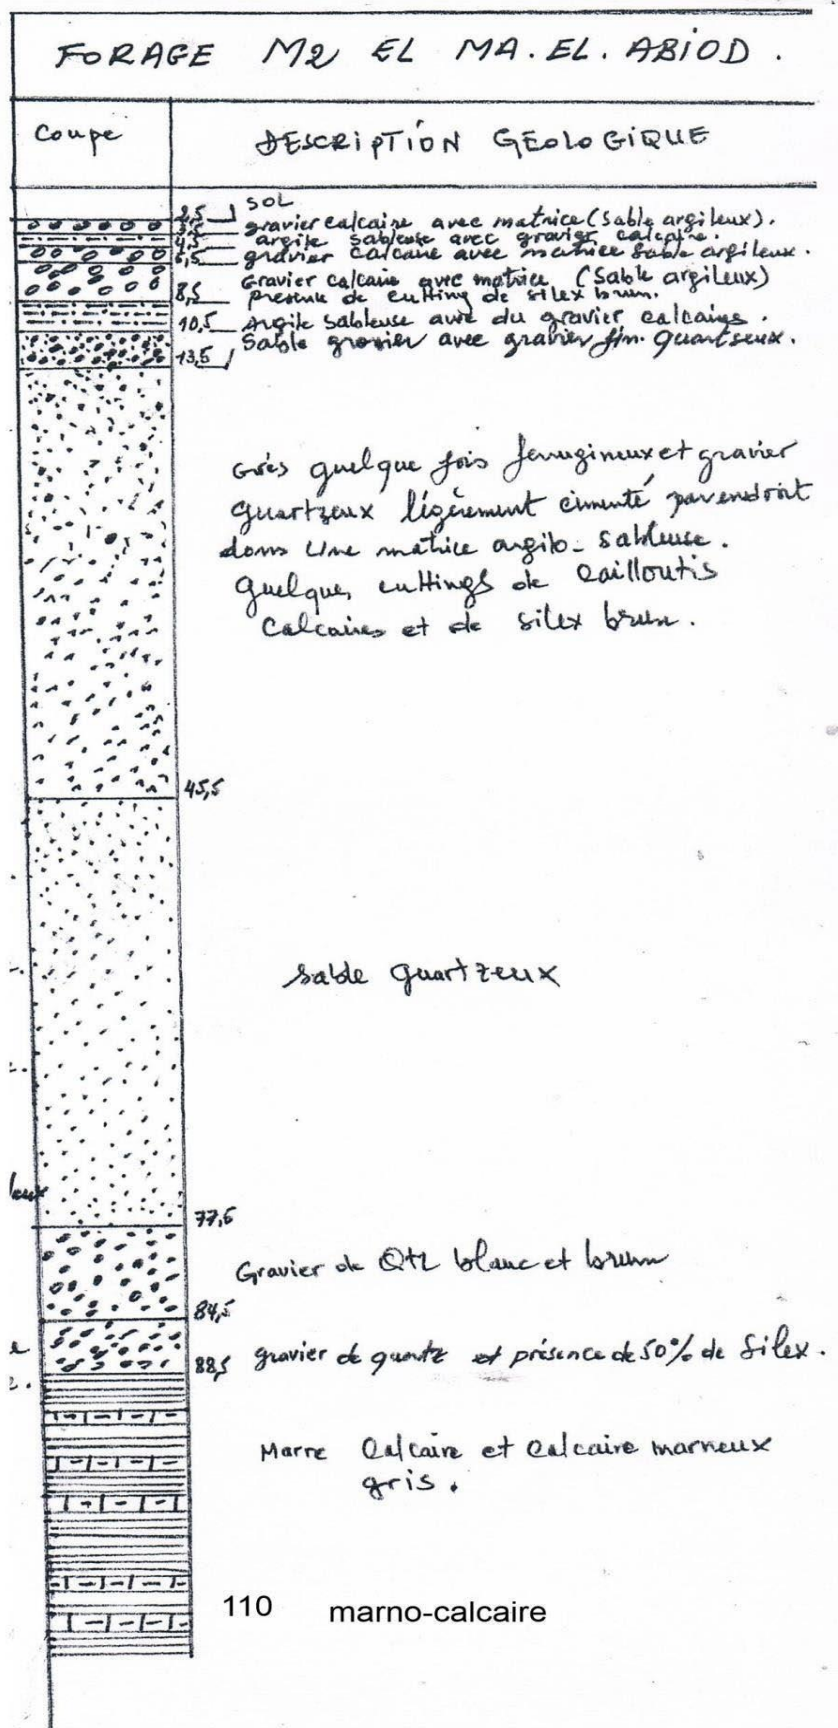 FORAGE M2 EL MA.EL.ABIOD.
Coupe
DESCRIPTION GEOLOGIQUE
SOL
2,5
gravier calcaire avec matrice (Sable argileux).
argile sableuse avec gravier calcaire.
4,5
gravier calcaire avec matrice sable argileux.
6,5
Gravier calcaire avec matrice (Sable argileux)
8,5
présence de cutting de silex brun.
10,5 Argile sableuse avec du gravier calcaires.
Sable grossier avec gravier fin quartseux.
13,5
Grès quelque fois ferrugineux et gravier
quartzeux légèrement cimenté par endroit
dans une matrice argilo-sableuse.
Quelques cuttings de cailloutis
calcaires et de silex brun.
45,5
Sable quartzeux
77,5
Gravier de Qtz blanc et brun
84,5
88,5 gravier de quartz et présence de 50% de Silex.
Marne Calcaire et calcaire marneux
gris.
110 marno-calcaire